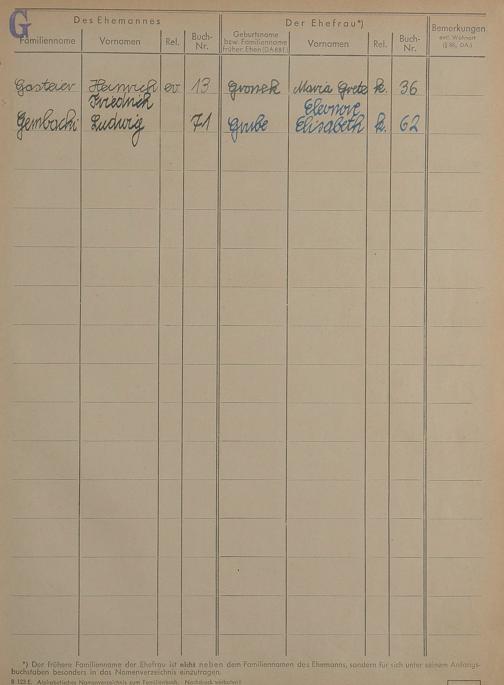 G
Des Ehemannes Der Ehefrau*) Bemerkungen
Familienname Vornamen Rel. Buch-Nr. Geburtsname Vornamen Rel. Buch-Nr. evtl. Wohnort
bzw. Familienname (§ 86, DA.)
früher. Ehen (DA 681)
Gasteier Heinrich ev 13 Gronek Maria Grete k. 36
Friedrich Eleonore
Gembacki Ludwig 71 Grube Elisabeth k. 62
*) Der frühere Familienname der Ehefrau ist nicht neben dem Familiennamen des Ehemanns, sondern für sich unter seinem Anfangs-
buchstaben besonders in das Namenverzeichnis einzutragen.
B 123 E. Alphabetisches Namenverzeichnis zum Familienbuch. Nachdruck verboten!